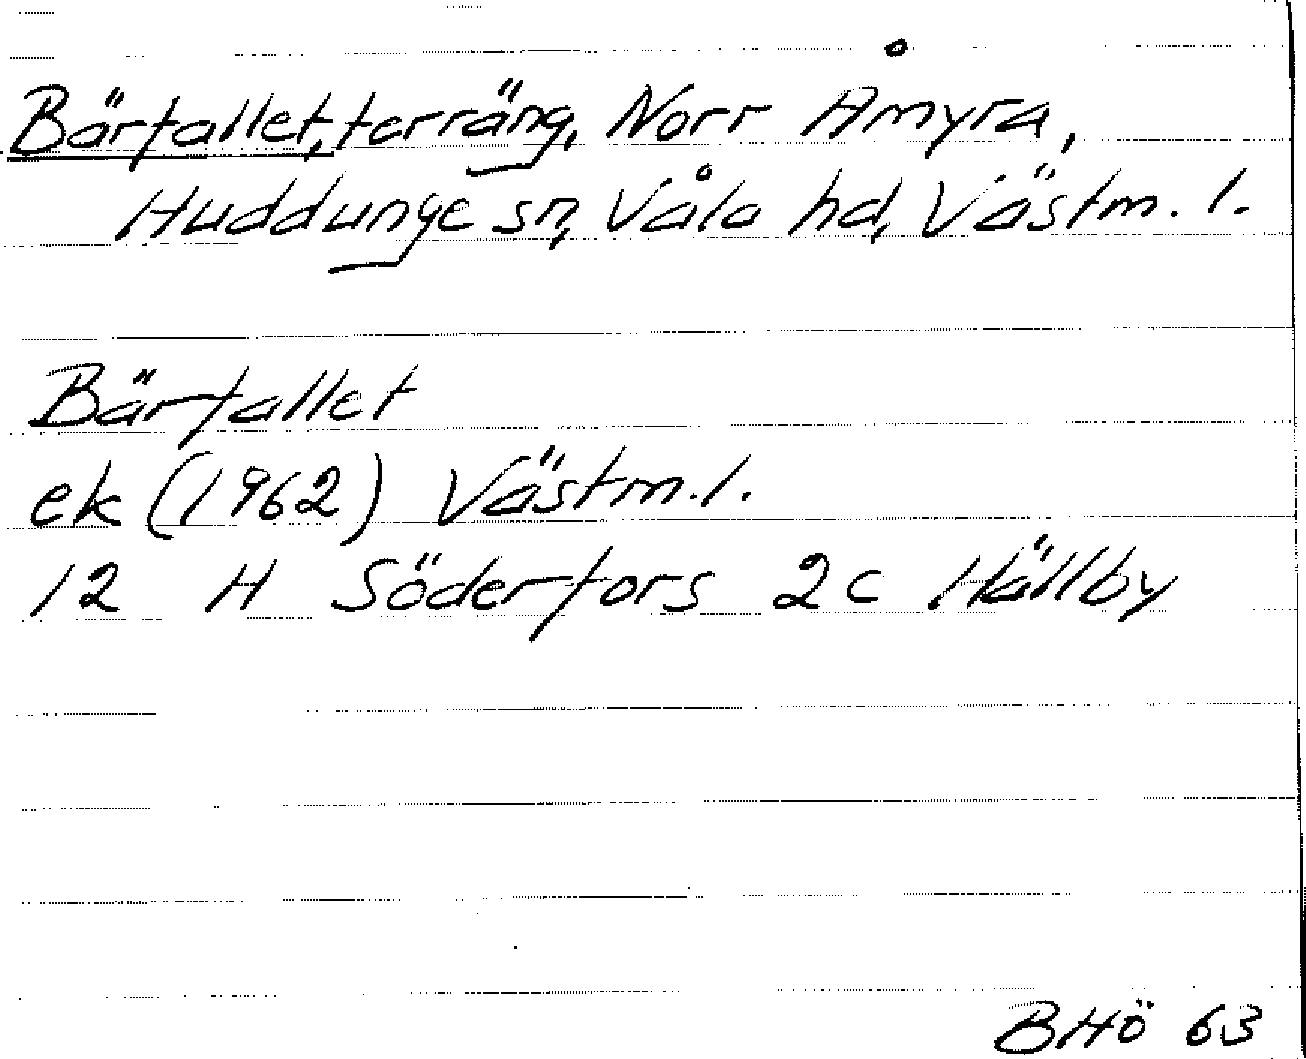 Bärfallet, terräng, Norr Åmyra,
Huddunge sn, Våla hd, Västm. l.
Bärfallet
ek (1962) Västm. l.
12 H Söderfors 2c Hällby
BHö 63